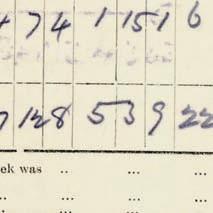 7 4 1 15 1 6
128 5 3 9 22
ek was .. ... ...
.. ... ...